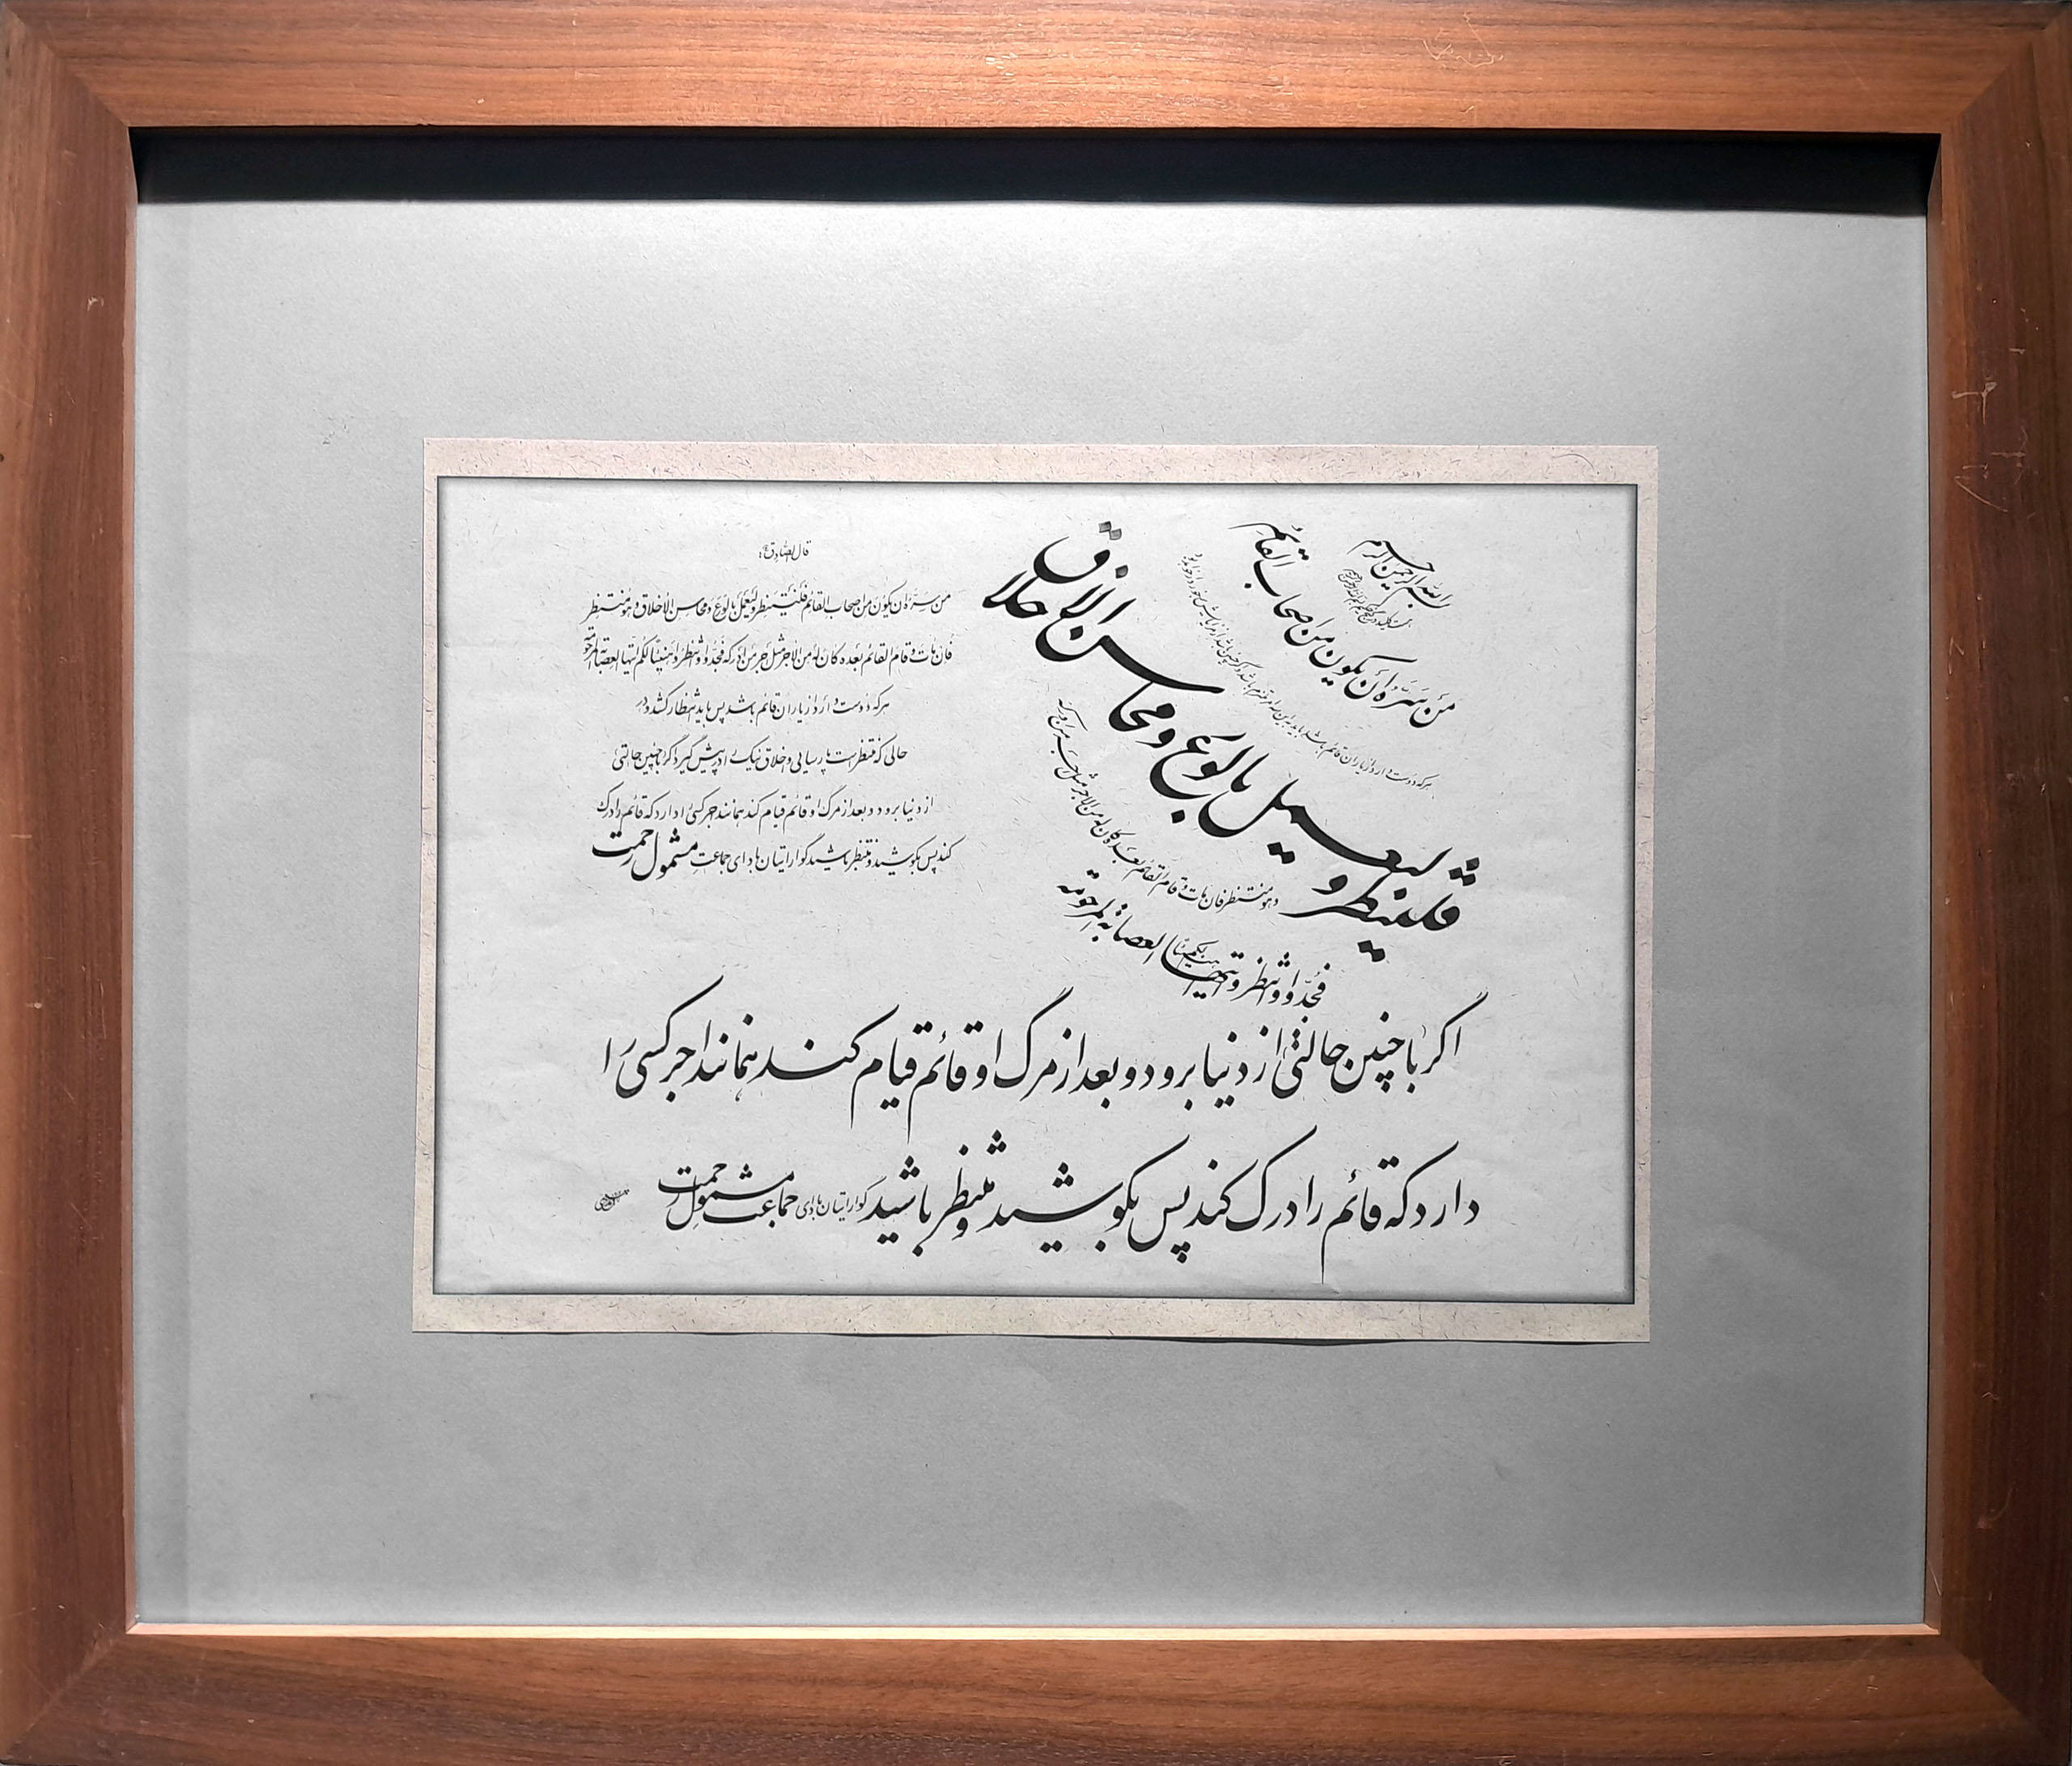 بسم الله الرحمن الرحیم
من سره ان یکون من اصحاب القائم
هرکه دوست دارد از یاران قائم باشد باید
فلینتظر و لیعمل بالورع و محاسن الاخلاق
و هو منتظر فان مات و قام القائم بعده کان له من الاجر مثل اجر من ادرکه
فجدوا و انتظروا هنیئا لکم ایتها العصابة المرحومة
قال الصادق ع:
من سَرَّهُ ان یکون من اصحاب القائم فلینتظر ولیعمل بالورع و محاسن الاخلاق و هو منتظر
فان مات و قام القائم بعده کان له من الاجر مثل اجر من ادرکه فجدوا و انتظروا هنیئا لکم ایتها العصابة المرحومة
هرکه دوست دارد از یاران قائم باشد پس باید انتظار کشد و در
حالی که منتظر است پارسایی و اخلاق نیک را در پیش گیرد اگر با چنین حالتی
از دنیا برود و بعد از مرگ او قائم قیام کند همانند اجر کسی را دارد که قائم را درک
کند پس بکوشید و منتظر باشید گوارایتان باد ای جماعت مشمول رحمت
اگر با چنین حالتی از دنیا برود و بعد از مرگ او قائم قیام کند همانند اجر کسی را
دارد که قائم را درک کند پس بکوشید و منتظر باشید گوارایتان باد ای جماعت مشمول رحمت